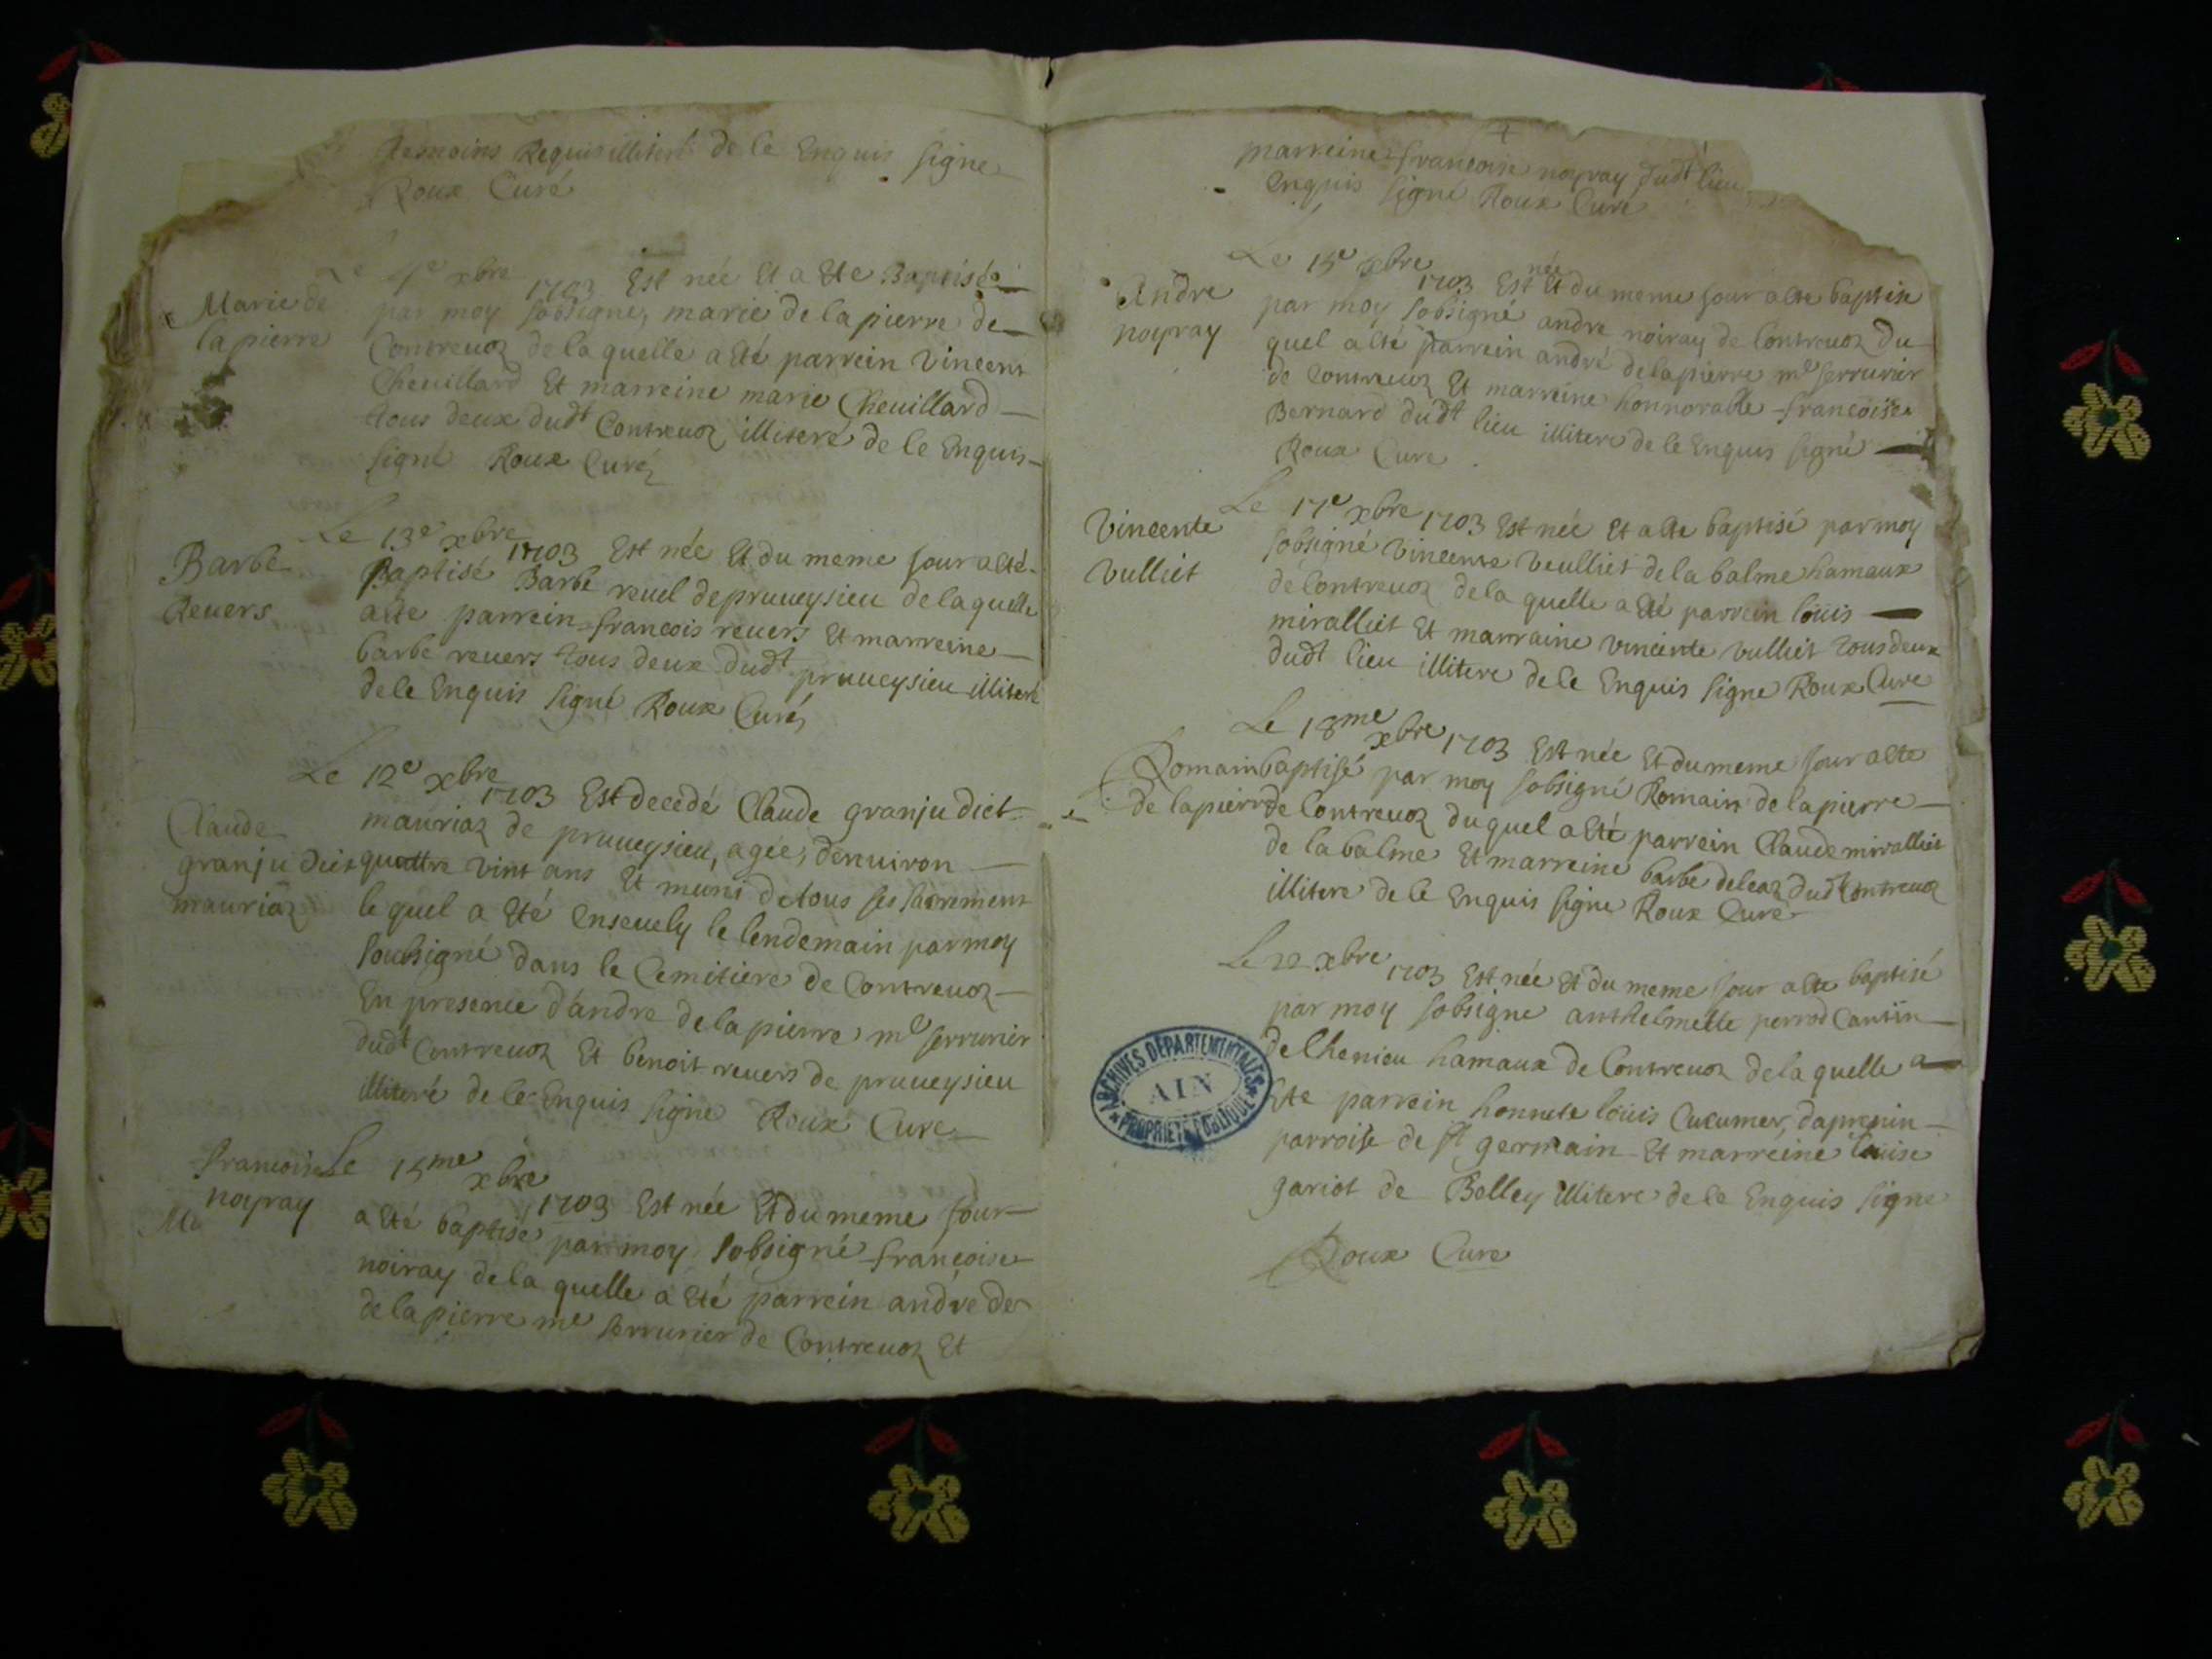 temoins Requis illiteré de le Enquis signe
Roux Curé
Marie de
la pierre
Le 4e xbre 1703 Est née Et a Ete Baptisée
par moy sobsigné, marie de la pierre de
Contreuoz de la quelle a Eté parrein Vincent
Cheuillard Et marreine marie Cheuillard
tous deux dudt Contreuoz illiteré de le Enquis
signé Roux Curé
Barbe
Reuers
Le 13e xbre 1703 Est née Et du meme jour a Eté
Baptisé Barbe reuel de pruueysieu de la quelle
a Ete parrein francois reuers Et marreine
barbe reuers tous deux dudt pruueysieu illiteré
de le Enquis signé Roux Curé
Claude
granju dict
mauriaz
Le 12e xbre 1703 Est decedé Claude granju dict
mauriaz de prueysieu, agée, denuiron
quattre vint ans Et muni de tous ses sacrement
le quel a Eté Enseuely le lendemain par moy
soubsigné dans le Cemitiere de Contreuoz
En presence d'andre de la pierre me serrurier
dudt Contreuoz Et benoit reuers de prueysieu
illiteré de le Enquis signe Roux Cure
francoise
noyray
Ma
Le 15me xbre 1703 Est née Et du meme jour
a Eté baptisé par moy sobsigné françoise
noiray de la quelle a Eté parrein andre de
de la pierre me serrurier de Contreuoz Et
marreine francoise noyray dudt lieu
Enquis signé Roux Curé
Andre
noyray
Le 15e xbre 1703 Est née Et du meme jour a Ete baptise
par moy sobsigné andre noiray de Contreuoz du
quel a Eté parrein andré de la pierre me serrurier
de Contreuoz Et marreine honnorable francoise
Bernard dudt lieu illitere de le Enquis signé
Roux Cure
Vincente
Vulliet
Le 17e xbre 1703 Est née Et a Ete baptisé par moy
sobsigné Vincente Veulliet de la balme hamaux
de Contreuoz de la quelle a Eté parrein loüis
miralliet Et marraine vincente vulliet tous deux
dudt lieu illitere de le Enquis signe Roux Cure
Romain
de la pierre
Le 18me xbre 1703 Est née Et du meme jour a Ete
baptisé par moy sobsigné Romain de la pierre
de Contreuoz du quel a Eté parrein Claude miralliet
de la balme Et marreine barbe deleaz dudt Contreuoz
illitere de le Enquis signe Roux Curé
Le 22 xbre 1703 Est née Et du meme jour a Ete baptisé
par moy sobsigne anthelmette perrod Cantin
de Chenieu hamaux de Contreuoz de la quelle a
Ete parrein honnete loüis Cucumer, daprenin
parroise de st germain Et marreine loüise
gariot de Belley illitere de le Enquis signe
Roux Cure
ARCHIVES DÉPARTEMENTALES
AIN
PROPRIÉTÉ PUBLIQUE